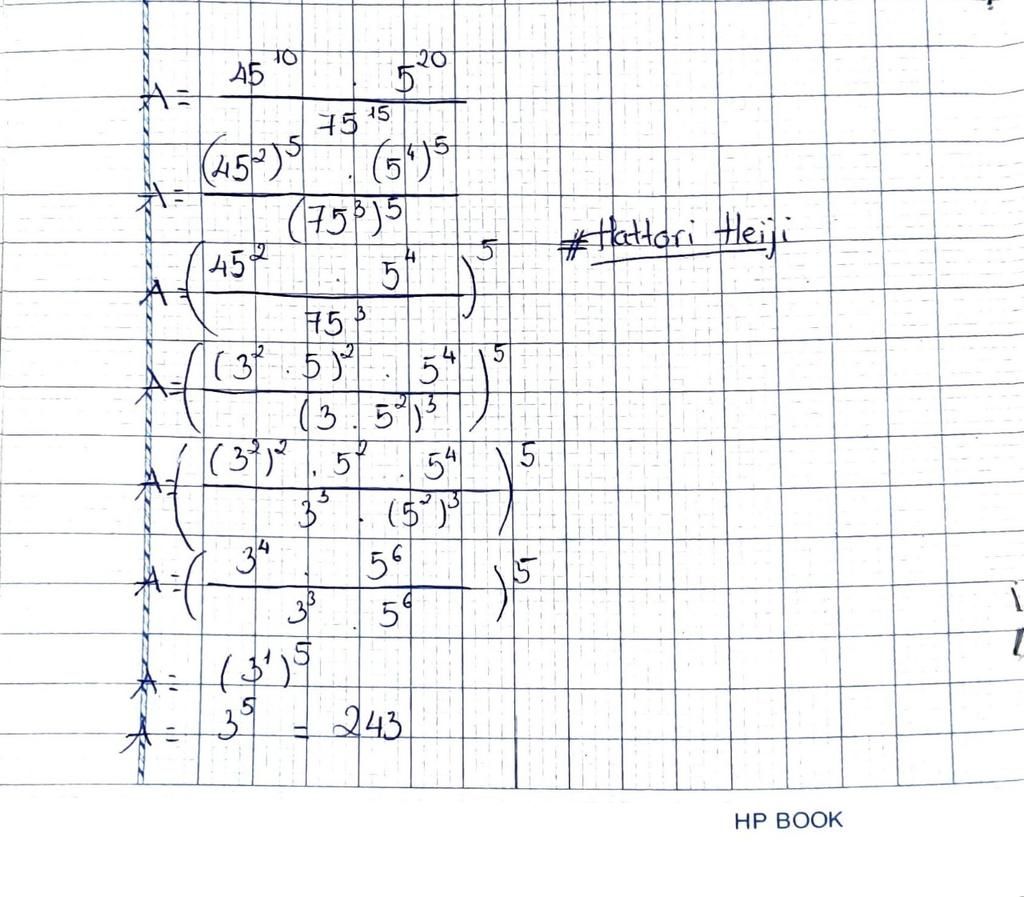 A = \frac{45^{10} . 5^{20}}{75^{15}}
A = \frac{(45^2)^5 . (5^4)^5}{(75^3)^5}
# Hattori Heiji
A = \left(\frac{45^2 . 5^4}{75^3}\right)^5
A = \left(\frac{(3^2 . 5)^2 . 5^4}{(3 . 5^2)^3}\right)^5
A = \left(\frac{(3^2)^2 . 5^2 . 5^4}{3^3 . (5^2)^3}\right)^5
A = \left(\frac{3^4 . 5^6}{3^3 . 5^6}\right)^5
A = (3^1)^5
A = 3^5 = 243
HP BOOK